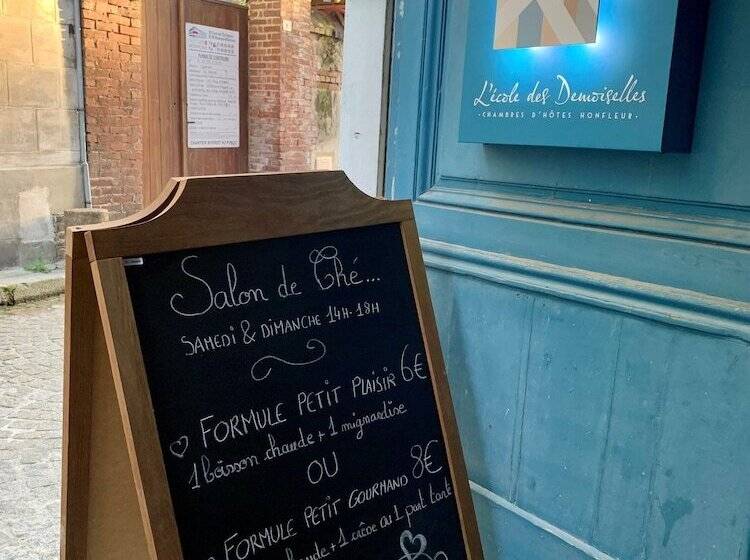 L'école des Demoiselles
• CHAMBRES D'HÔTES HONFLEUR •
Salon de Thé...
SAMEDI & DIMANCHE 14H-18H
FORMULE PETIT PLAISIR 6€
1 boisson chaude + 1 mignardise
OU
FORMULE PETIT GOURMAND 8€
chaude + 1 ou 1 part tarte